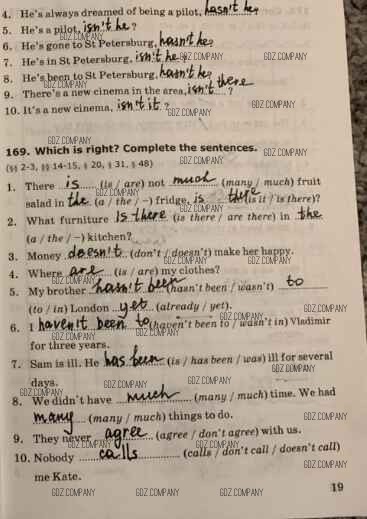 4. He's always dreamed of being a pilot, hasn't he?
5. He's a pilot, isn't he?
GDZ.COMPANY
6. He's gone to St Petersburg, hasn't he?
GDZ.COMPANY
7. He's in St Petersburg, isn't he?
GDZ.COMPANY
8. He's been to St Petersburg, hasn't he?
GDZ.COMPANY
9. There's a new cinema in the area, isn't there ?
10. It's a new cinema, isn't it ?
GDZ.COMPANY
GDZ.COMPANY
169. Which is right? Complete the sentences.
(§§ 2-3, §§ 14-15, § 20, § 31, § 48) GDZ.COMPANY
1. There is (is / are) not much (many / much) fruit
GDZ.COMPANY
salad in the (a / the / –) fridge, is there (is it / is there)?
2. What furniture is there (is there / are there) in the
GDZ.COMPANY
(a / the / –) kitchen?
3. Money doesn't (don't / doesn't) make her happy.
4. Where are (is / are) my clothes?
5. My brother hasn't been (hasn't been / wasn't) to
(to / in) London yet (already / yet).
6. I haven't been to (haven't been to / wasn't in) Vladimir
GDZ.COMPANY
for three years.
7. Sam is ill. He has been (is / has been / was) ill for several
GDZ.COMPANY
days.
GDZ.COMPANY
8. We didn't have much (many / much) time. We had
many (many / much) things to do.
GDZ.COMPANY
9. They never agree (agree / don't agree) with us.
10. Nobody calls (calls / don't call / doesn't call)
GDZ.COMPANY
me Kate.
19
GDZ.COMPANY GDZ.COMPANY GDZ.COMPANY GDZ.COMPANY